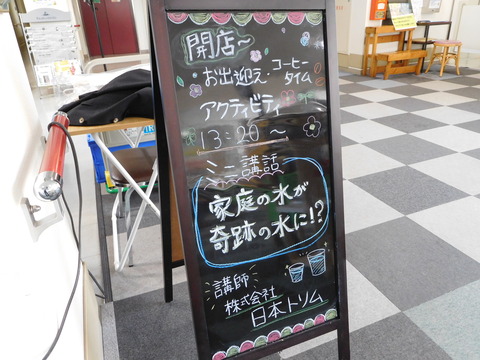 開店～
お出迎え・コーヒータイム
アクティビティ
13:20～
ミニ講話
家庭の水が
奇跡の水に!?
講師
株式会社
日本トリム